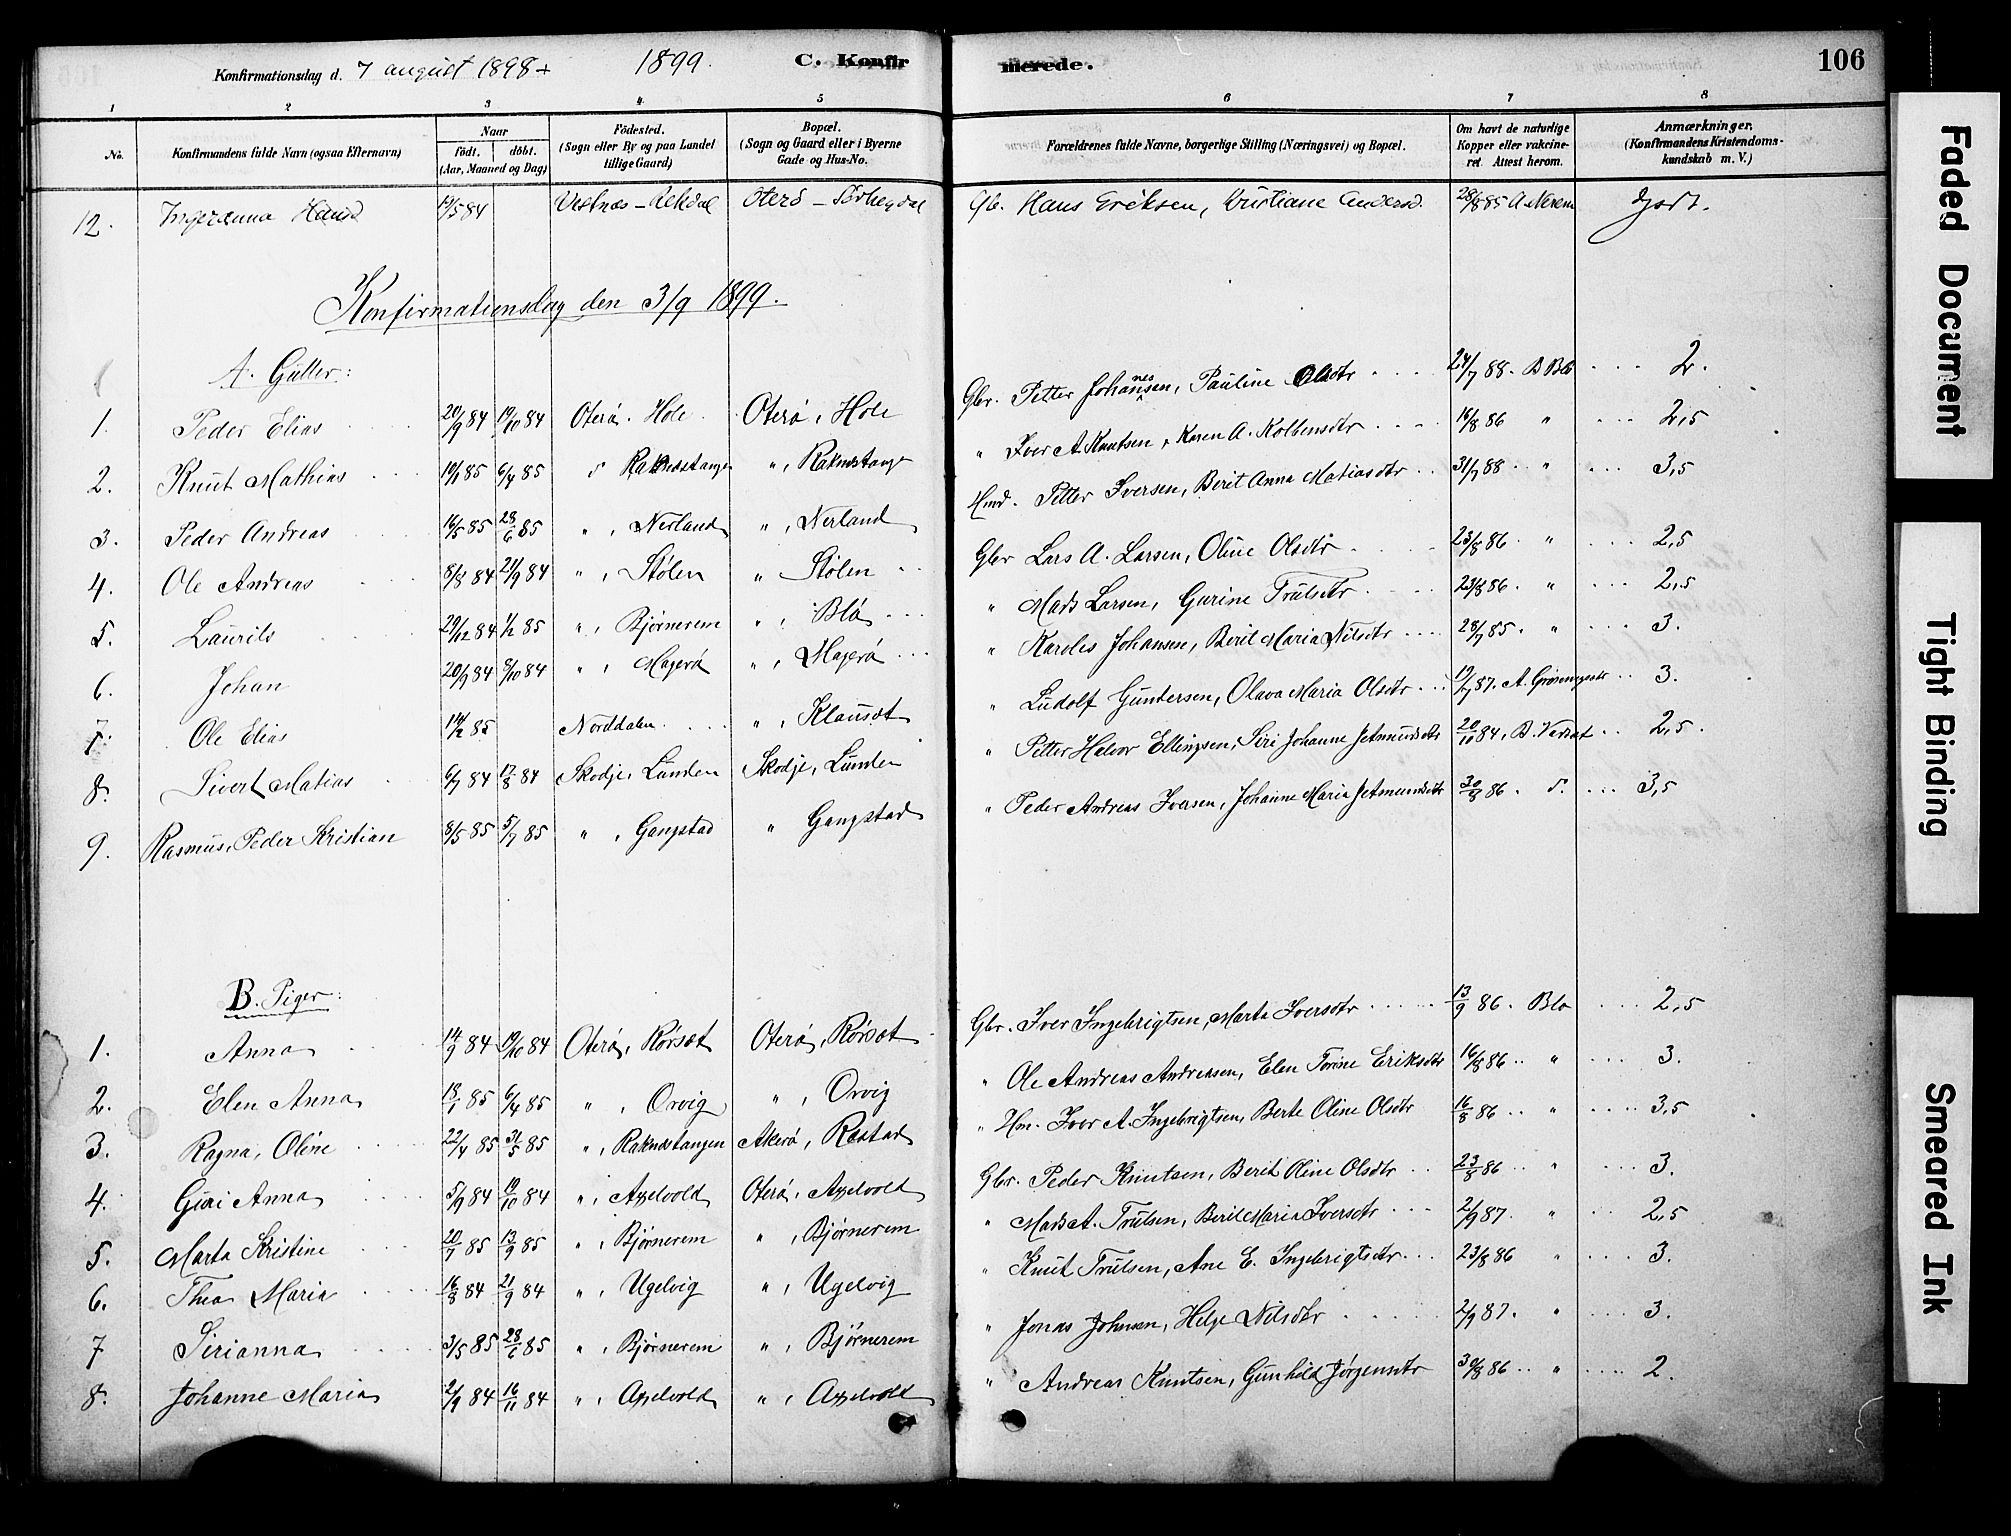 Konfirmationsdag d. 7 august 1898 + 1899. C. Konfirmerede. 106
1 2 3 4 5 6 7 8
No. Konfirmandens fulde Navn (ogsaa Efternavn) Naar født. døbt. (Aar, Maaned og Dag) Fødested. (Sogn eller By og paa Landet tillige Gaard) Bopæl. (Sogn og Gaard eller i Byerne Gade og Hus-No. Forældrenes fulde Navne, borgerlige Stilling (Næringsvei) og Bopæl. Om havt de naturlige Kopper eller vakcineret. Attest herom. Anmærkninger. (Konfirmandens Kristendomskundskab m. V.)
12. Ingeranna Hansd 19/5 84 Vestnæs - Rekdal Oterø - Gb. Hans Eriksen, Kristiane Andersd. 28/8 85 A. Nerem godt.
Konfirmationsdag den 3/9 1899.
A. Gutter:
1. Peder Elias 20/9 84 19/10 84 Oterø. Hole Oterø, Hole Gbr. Petter Johannessen, Pauline Olsdtr 24/7 88. B Blø 2.
2. Knut Mathias 19/1 85 6/4 85 " Raknestangen ", Raknestange " Iver A. Knutsen, Karen A. Kolbensdtr 16/8 86 " 2,5
3. Peder Andreas 16/5 85 28/6 85 ", Nerland ", Nerland Hmd. Petter Iversen, Berit Anna Matiasdtr 31/7 88 " 3,5
4. Ole Andreas 8/8 84 21/9 84 ", Stølen " Stølen Gbr Lars A. Larsen, Oline Olsdtr 23/8 86 " 2,5
5. Laurits 29/12 84 1/2 85 ", Bjørnerem ", Blø " Mads Larsen, Gurine Trulsdtr 23/8 86. " 2,5
6. Johan 20/9 84 8/10 84 ", Magerø ", Magerø " Karoles Johansen, Berit Maria Nilsdtr 28/7 85. " 3.
7. Ole Elias 14/2 85 Norddalen ", Klauset " Ludolf Guntersen, Olava Maria Olsdtr 19/7 87. A. 3.
8. Sivert Matias 6/7 84 17/8 84 Skodje, Lunden Skodje, Lunden " Petter Halvor Ellingsen, Siri Johanne Jetmundsdtr 20/10 84, B. 2,5.
9. Rasmus, Peder Kristian 8/5 85 5/7 85 ", Gangstad " Gangstad " Peder Andreas Iversen, Johanne Maria Jetmundsdtr 30/8 86. 3,5
B. Piger:
1. Anna 14/9 84 19/10 84 Oterø, Rørset Oterø, Rørset Gbr. Iver Ingebrigtsen, Marta Iversdtr 13/9 86. Blø 2,5
2. Elen Anna 18/1 85 6/4 85 ", Orvig ", Orvig " Ole Andreas Andreasen, Elen Torine Eriksdtr 16/8 86 " 3.
3. Ragna, Oline 22/4 85 31/5 85 ", Raknestangen Akerø, Røstad " Hm. Iver A. Ingebrigtsen, Berte Oline Olsdtr 16/8 86 " 3,5
4. Guri Anna 5/9 84 19/10 84 ", Axelvold Oterø, Axelvold Gbr. Peder Knutsen, Berit Oline Olsdtr 23/8 86 " 3.
5. Marta Kristine 20/7 85 13/9 85 ", Bjørnerem ", Bjørnerem " Mads A. Trulsen, Berit Maria Iversdtr 2/9 87. " 2,5
6. Thea Maria 16/8 84 21/9 84 ", Ugelvig ", Ugelvig " Knut Trulsen, Ane E. Ingebrigtsdtr 23/8 86 " 3.
7 Sirianna 3/5 85 28/6 85 ", Bjørnerem ", Bjørnerem " Jonas Johnsen, Helge Nilsdtr 2/9 87. " 3.
8. Johanne Maria 2/9 84 16/11 84 ", Axelvold ", Axelvold " Andreas Knutsen, Gunhild Jørgensdtr 30/8 86 " 2.
Faded Document
Tight Binding
Smeared Ink